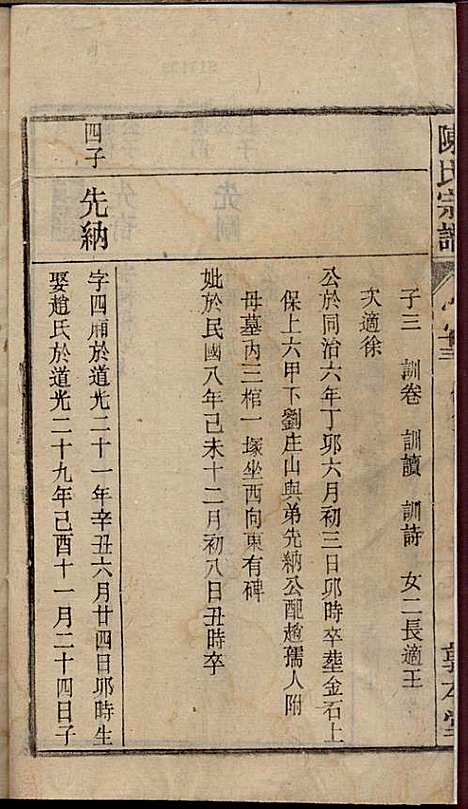 陳氏宗譜
子三 訓卷 訓讀 訓詩 女二長適王
次適徐
公於同治六年丁卯六月初三日卯時卒塟金石上
保上六甲下劉庄山與弟先納公配趙孺人附
母墓內三棺一塚坐西向東有碑
妣於民國八年己未十二月初八日丑時卒
四子
先納
字四廂於道光二十一年辛丑六月廿四日卯時生
娶趙氏於道光二十九年己酉十一月二十四日子